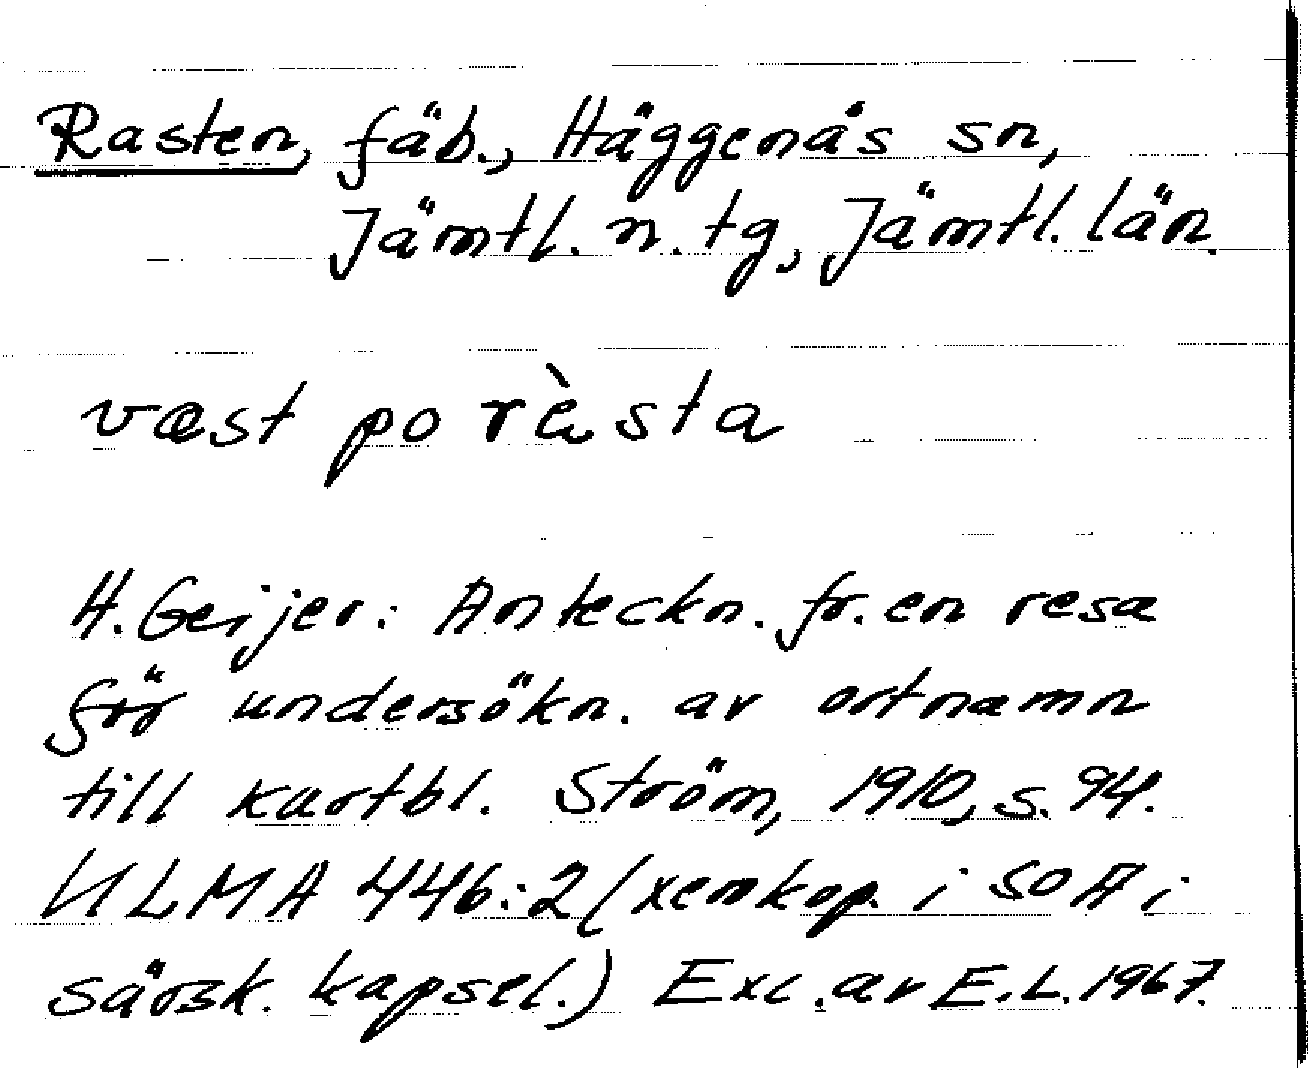 Rasten, fäb., Häggenås sn,
Jämtl. n. tg, Jämtl. län.
væst po ræ̀sta
H. Geijer: Anteckn. fr. en resa
för undersökn. av ortnamn
till kartbl. Ström, 1910, s. 94.
ULMA 446:2 (xerokop. i SOA i
särsk. kapsel.) Exc. av E.L. 1967.